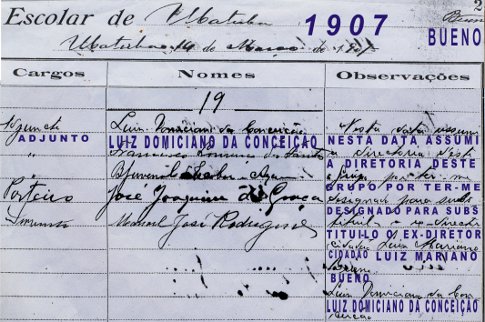 2
Escolar de Ubatuba 1907 Bueno
BUENO
Ubatuba 14 de Março de 1907
Cargos Nomes Observações
19
Adjuncto Luiz Domiciano da Conceição Nesta data assumi
ADJUNTO LUIZ DOMICIANO DA CONCEIÇÃO NESTA DATA ASSUMI
" Francisco dos Santos a directoria deste
A DIRETORIA DESTE
Bjuvenal grupo por ter-me
GRUPO POR TER-ME
Porteiro José Joaquim de Graça designado para subs
DESIGNADO PARA SUBS
Servente Manoel José Rodrigues titui o ex-director
TITUILO O EX-DIRETOR
cidadão Luiz Mariano
CIDADÃO LUIZ MARIANO
Bueno
BUENO
Luiz Domiciano da Con
LUIZ DOMICIANO DA CONCEIÇÃO
ceição